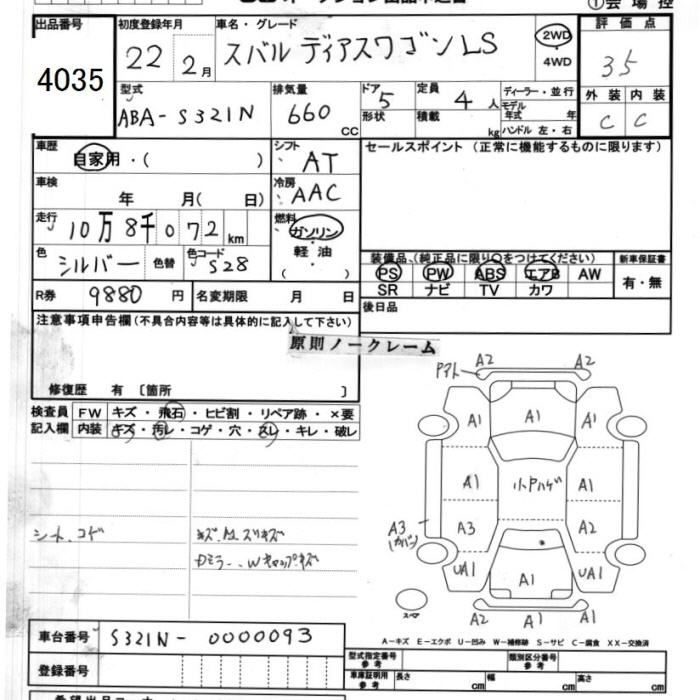 ①会場控
出品番号
4035
初度登録年月
22 2月
車名・グレード
スバル ディアスワゴン LS
2WD
・
4WD
評価点
35
外装 内装
C C
型式
ABA-S321N
排気量
660 CC
ドア
5
形状
定員
4人
積載
kg
ディーラー・並行
モデル
年式 年
ハンドル 左・右
車歴
自家用・( )
シフト
AT
車検
年 月( 日)
冷房
AAC
走行
10万8千072 km
燃料
ガソリン
・
軽油
( )
色
シルバー
色替
色コード
S28
R券
9880円
名変期限 月 日
セールスポイント (正常に機能するものに限ります)
装備品、(純正品に限り○をつけてください)
PS PW ABS エアB AW
SR ナビ TV カワ
新車保証書
有・無
後日品
注意事項申告欄(不具合内容等は具体的に記入して下さい)
原則ノークレーム
修復歴 有〔箇所 〕
検査員
記入欄
FW キズ・飛石・ヒビ割・リペア跡・×要
内装 キズ・汚レ・コゲ・穴・スレ・キレ・破レ
シート、コゲ
A2 A2
A1 A1 A1
A1 小Pハゲ A1
A3
A3 A2
UA1 A1 UA1
スペア
A2 A1 A2
A-キズ E-エクボ U-凹み W-補修跡 S-サビ C-腐食 XX-交換済
車台番号 S321N-0000093
登録番号
型式指定番号
参考
類別区分番号
参考
車庫証明用
参考
長さ cm 幅 cm 高さ cm